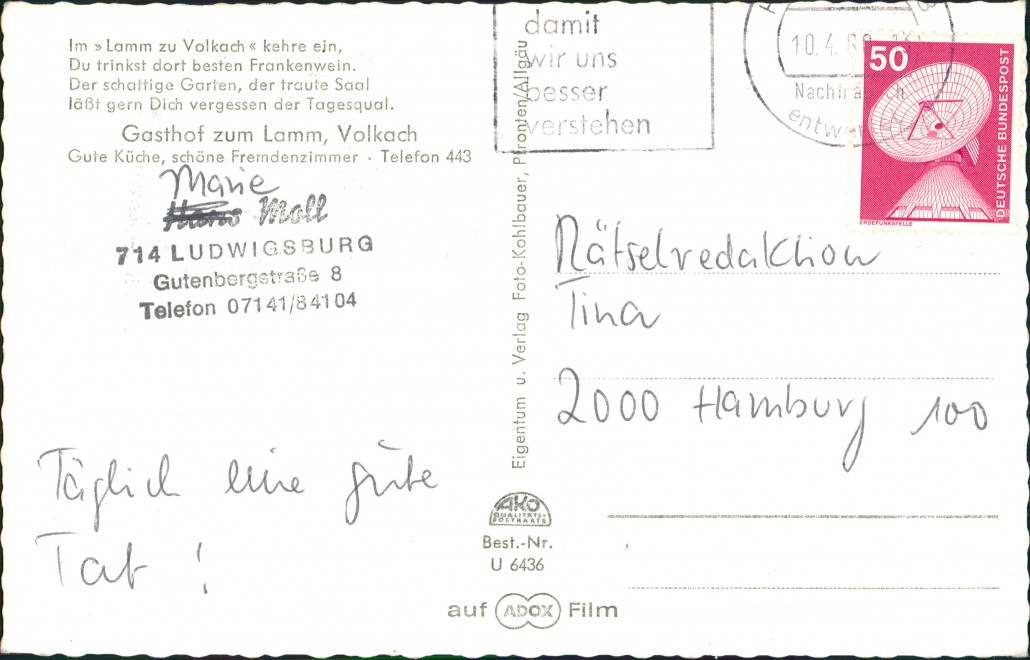 Im » Lamm zu Volkach « kehre ein,
Du trinkst dort besten Frankenwein.
Der schattige Garten, der traute Saal
läßt gern Dich vergessen der Tagesqual.
Gasthof zum Lamm, Volkach
Gute Küche, schöne Fremdenzimmer · Telefon 443
Marie
Hans Moll
714 LUDWIGSBURG
Gutenbergstraße 8
Telefon 07141/84104
Täglich eine gute
Tat !
Eigentum u. Verlag Foto-Kohlbauer, Pfronten/Allgäu
AKO
QUALITÄTS-
POSTKARTE
Best.-Nr.
U 6436
auf ADOX Film
damit
wir uns
besser
verstehen
10.4.
50
DEUTSCHE BUNDESPOST
ERDEFUNKSTELLE
Rätselredaktion
Tina
2000 Hamburg 100